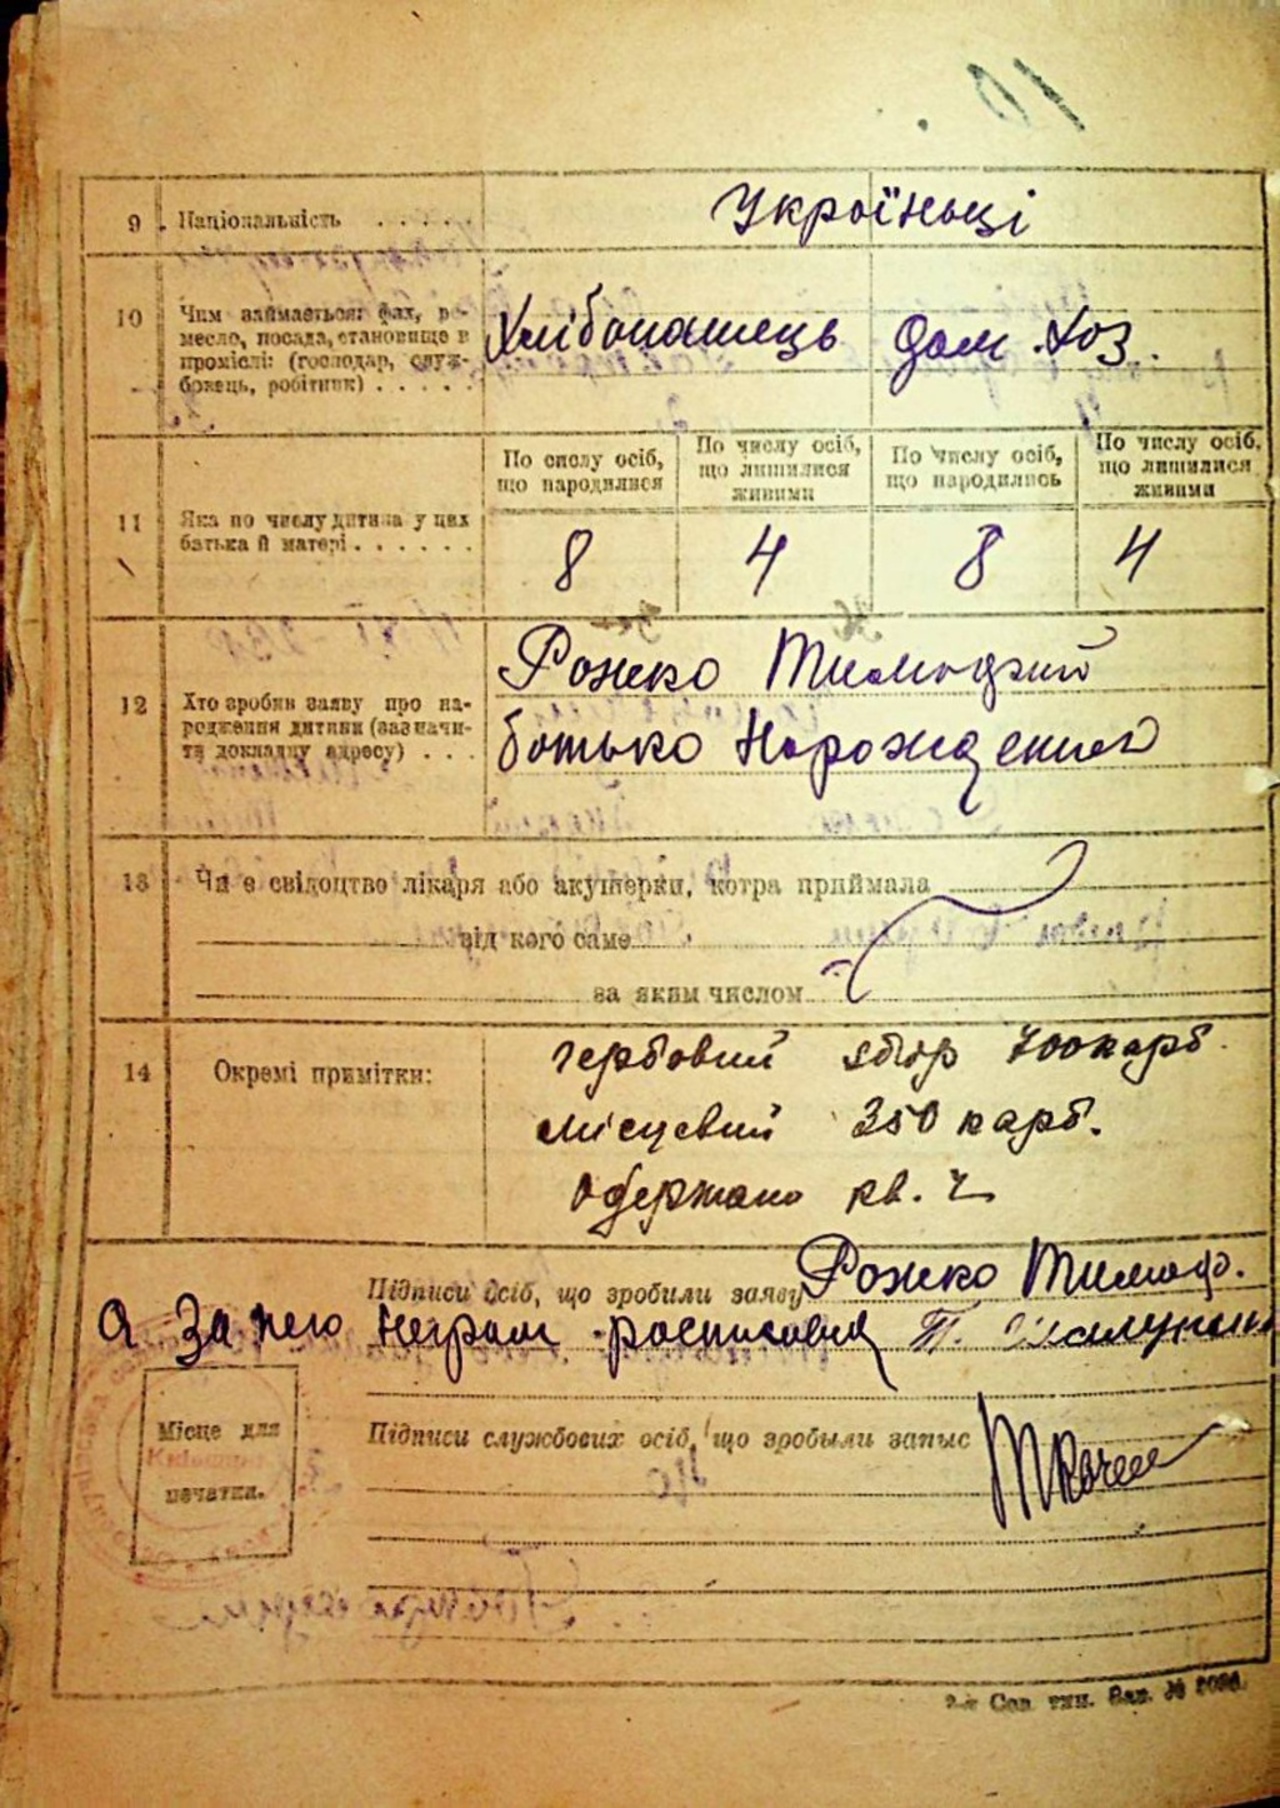 10
9 Національність . . . . . Українці
10 Чим займається: фах, ре-
месло, посада, становище в
промислі: (господар, служ-
бовець, робітник) . . . . .
Хлібопашець дом. Хоз.
По числу осіб, що народилися
По числу осіб, що лишилися живими
По числу осіб, що народились
По числу осіб, що лишилися живими
11 Яка по числу дитина у цих
батька й матері . . . . . .
8 4 8 4
12 Хто зробив заяву про на-
родження дитини (зазначи-
ти докладну адресу) . . .
Рожко Тимофій
батько
13 Чи є свідоцтво лікаря або акушерки, котра приймала
від кого саме
за яким числом
14 Окремі примітки:
гербовий збор 700 карб.
місцевий 350 карб.
Одержано кв. Ч
Підписи осіб, що зробили заяву Рожко Тимоф.
а за него неграм росписовся Т.
Місце для
печатки.
Підписи службових осіб, що зробыли запыс
2-а Сов. тип. Зак. №